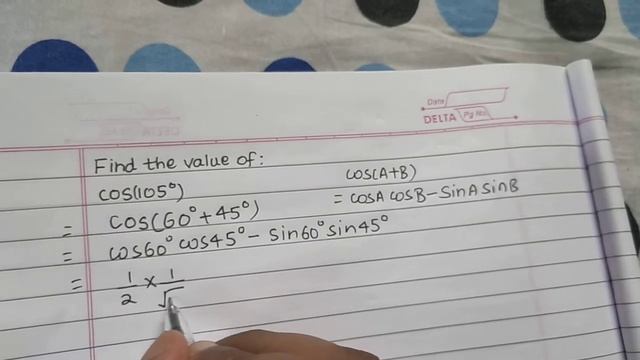 Date
DELTA Pg No.
Find the value of:
cos(105°)
cos(A+B)
= cos(60°+45°)
= cosA cosB - sinA sinB
= cos60° cos45° - sin60° sin45°
= 1/2 × 1/√